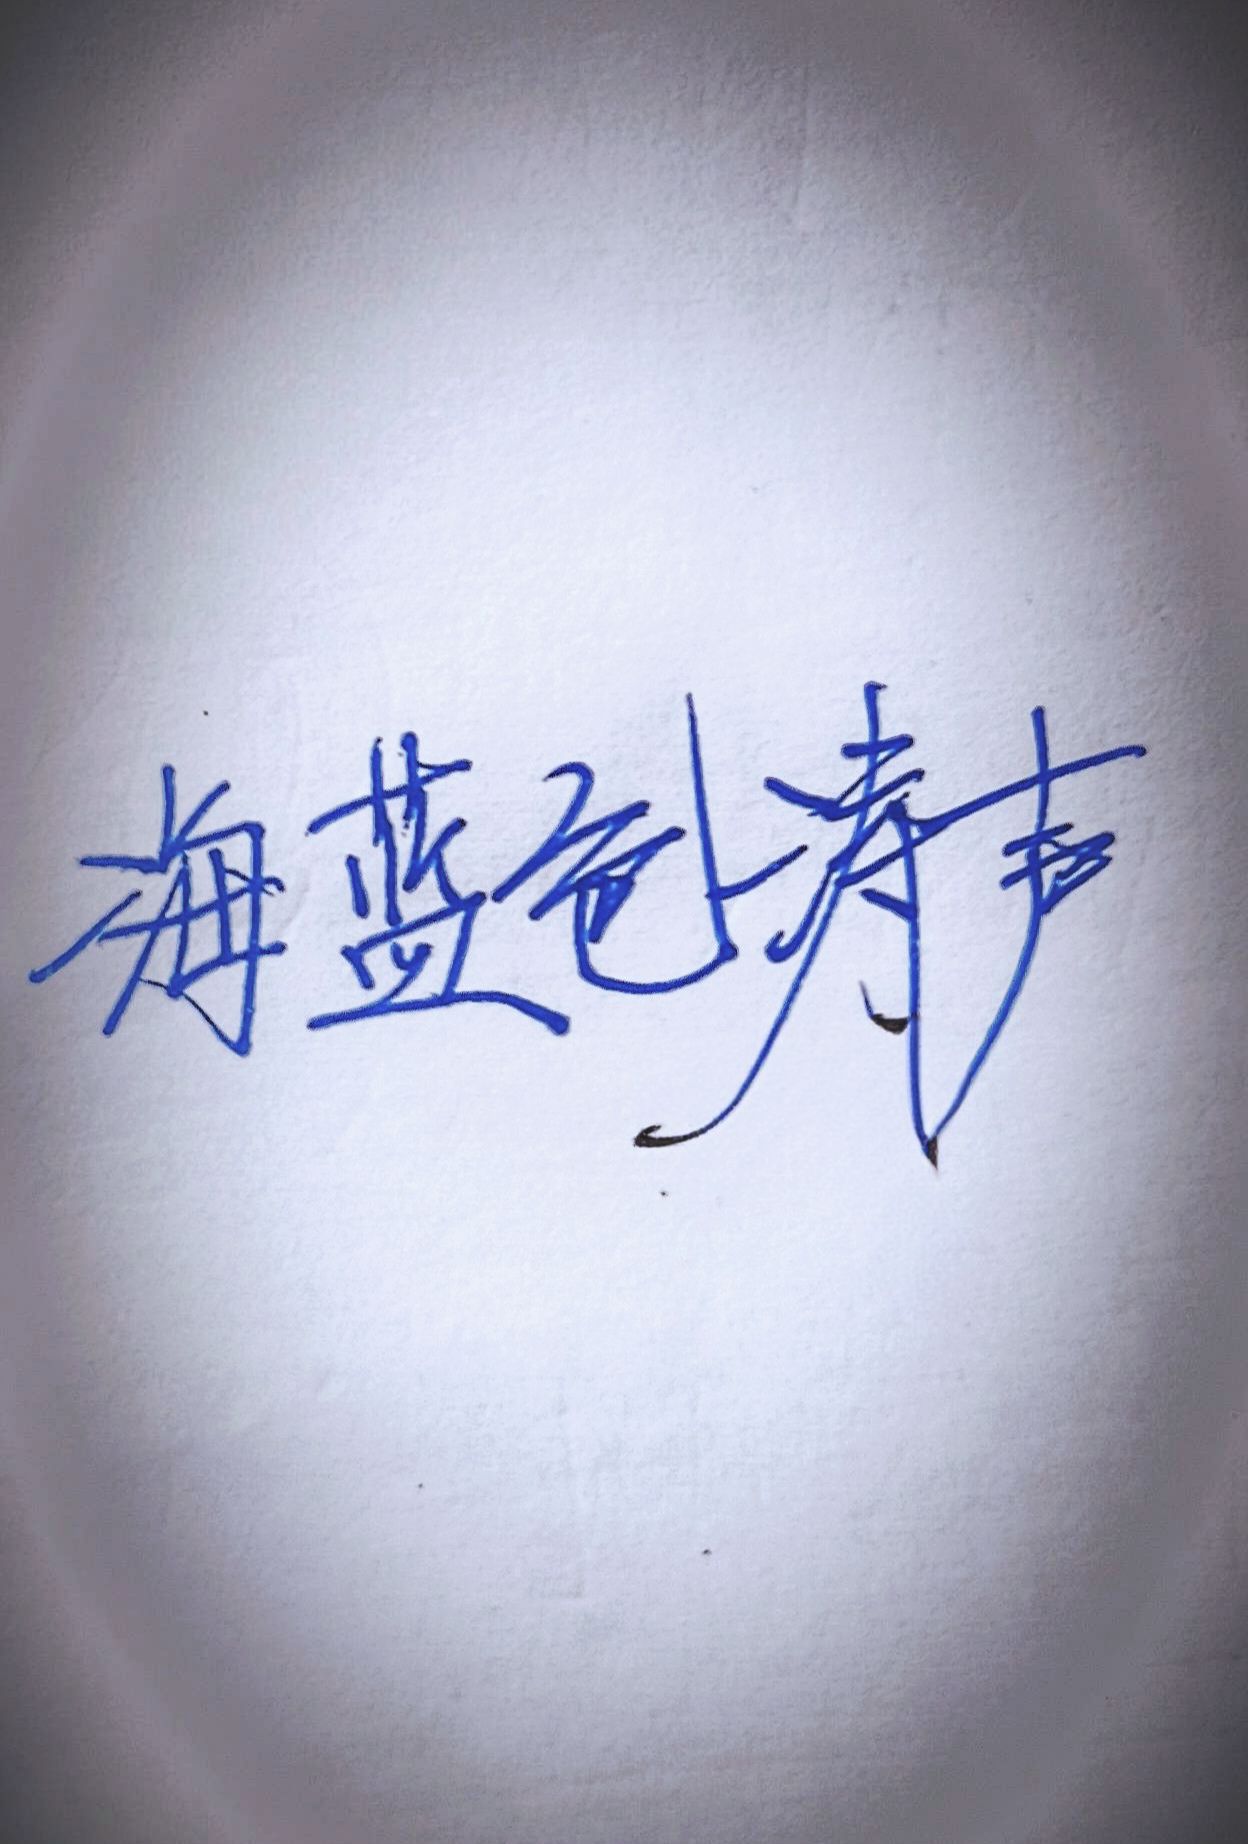 海蓝色涛声